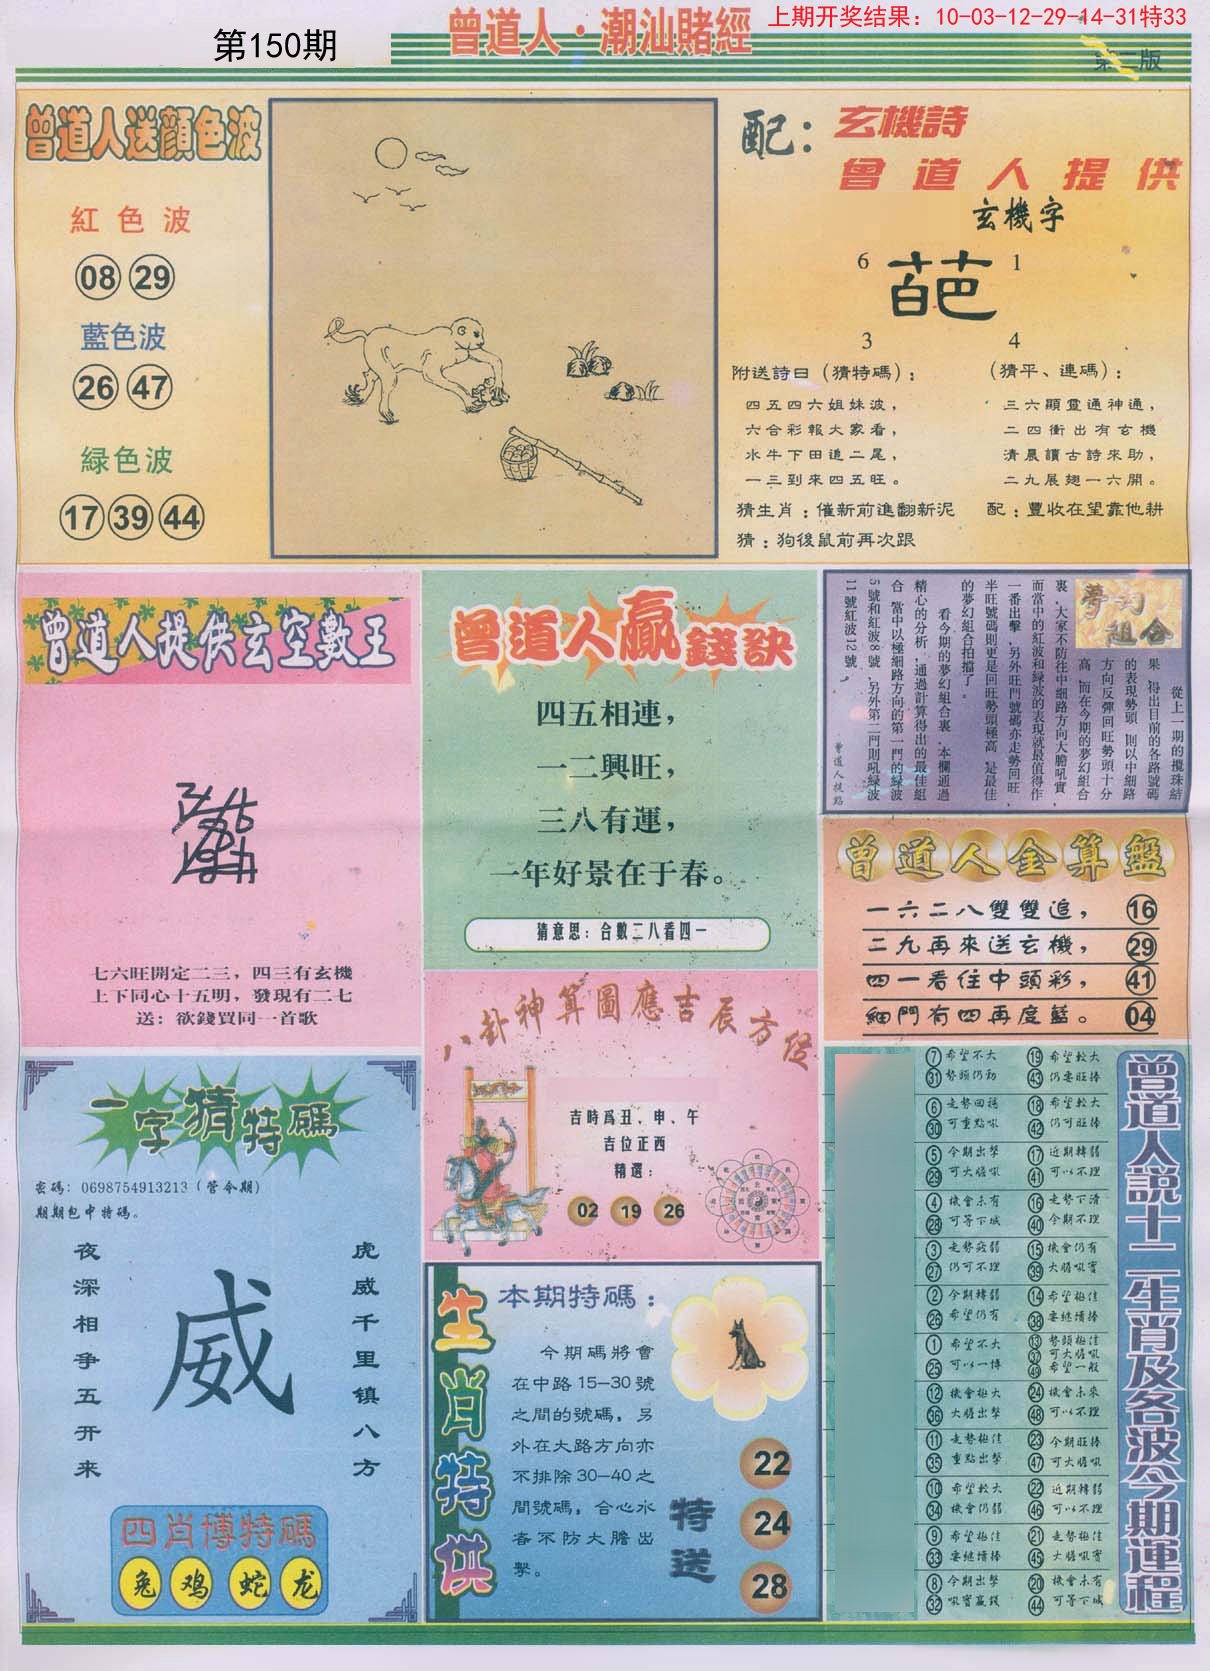 上期开奖结果：10-03-12-29-14-31特33
第150期
曾道人·潮汕賭經
第二版
曾道人送顔色波
紅色波
08 29
藍色波
26 47
緑色波
17 39 44
配：玄機詩
曾道人提供
玄機字
6 1
3 4
附送詩曰（猜特碼）：
四五四六姐妹波，
六合彩報大家看，
水牛下田追二尾，
一三到來四五旺。
（猜平、連碼）：
三六顯靈通神通，
二四衝出有玄機
清晨讀古詩來助，
二九展翅一六開。
猜生肖：催新前進翻新泥
配：豐收在望靠他耕
猜：狗後鼠前再次跟
曾道人提供玄空數王
七六旺開定二三，四三有玄機
上下同心十五明，發現有二七
送：欲錢買同一首歌
曾道人贏錢訣
四五相連，
一二興旺，
三八有運，
一年好景在于春。
猜意思：合數二八看四一
夢幻組合
從上一期的攪珠結
果,得出目前的各路號碼
的表現勢頭,則以中細路
方向反彈回旺勢頭十分
高,而在今期的夢幻組合
裏,大家不防往中細路方向大膽吼實,
而當中的紅波和緑波的表現就最值得作
一番出擊,另外旺門號碼亦走勢回旺,
半旺號碼則更是回旺勢頭極高,是最佳
的夢幻組合拍擋了。
看今期的夢幻組合裏,本欄通過
精心的分析,通過計算得出的最佳組
合,當中以極細路方向的第一門的緑波
5號和紅波8號,另外第二門則吼緑波
11號紅波12號。
曾道人提路
曾道人金算盤
一六二八雙雙追， 16
二九再來送玄機， 29
四一看住中頭彩， 41
細門有四再度藍。 04
八卦神算圖應吉辰方位
吉時爲丑、申、午
吉位正西
精選：
02 19 26
一字猜特碼
密碼：0698754913213（管今期）
期期包中特碼。
夜深相争五开来
威
虎威千里镇八方
四肖博特碼
兔 鸡 蛇 龙
生肖特供
本期特碼：
今期碼將會
在中路15—30號
之間的號碼，另
外在大路方向亦
不排除30—40之
間號碼，合心水
者不防大膽出
擊。
特送
22
24
28
曾道人說十二生肖及各波今期運程
7 希望不大 19 希望較大
31 勢頭仍劲 43 仍要旺捧
6 走勢回穩 18 希望較大
30 可重點吼 42 仍可旺捧
5 今期出擊 17 近期轉弱
29 可大膽吼 41 可以不理
4 機會未有 16 走勢下滑
28 可等下城 40 今期不理
3 走勢疲弱 15 機會仍有
27 仍可不理 39 大膽吼實
2 今期轉弱 14 希望極佳
26 希望仍有 38 要継續捧
1 希望不大 13 勢頭極佳
37 可大膽吼
25 可以一博 49 希望一般
12 機會極大 24 機會未來
36 大膽出擊 48 可以不理
11 走勢極佳 23 今期旺捧
35 重點出擊 47 可大膽吼
10 希望較大 22 近期轉弱
34 機會仍弱 46 可以不理
9 希望極佳 21 走勢極佳
33 要継續捧 45 大膽吼實
8 今期出擊 20 機會未有
32 吼實贏錢 44 可等下城